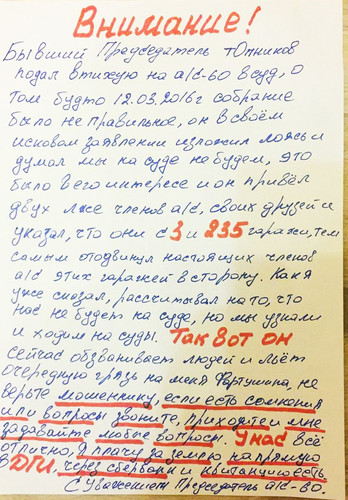 Внимание!
Бывший Председатель тОпников
подал втихую на а/с-60 в суд, о
том будто 12.03.2016г собрание
было не правильное, он в своём
исковом заявлении изложил ложь и
думал мы на суде не будем, это
было в его интересе и он привёл
двух лже членов а/с, своих друзей и
указал, что они с 3 и 235 гаражи, тем
самым отодвинул настоящих членов
а/с этих гаражей в сторону. Как я
уже сказал, рассчитывал на то, что
нас не будет на суде, но мы узнали
и ходим на суды. Так вот он
сейчас обзванивает людей и льёт
очередную грязь на меня Фартушина, не
верьте мошеннику, если есть сомнения
или вопросы звоните, приходите и мне
задавайте любые вопросы. У нас всё
отлично, я плачу за землю на прямую
в ДГИ, через сбербанк и квитанции есть.
С уважением Председатель а/с-60.